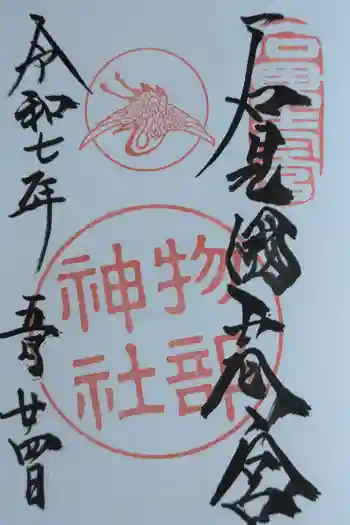 石見國一宮
物部
神社
令和七年
五月
廿四日